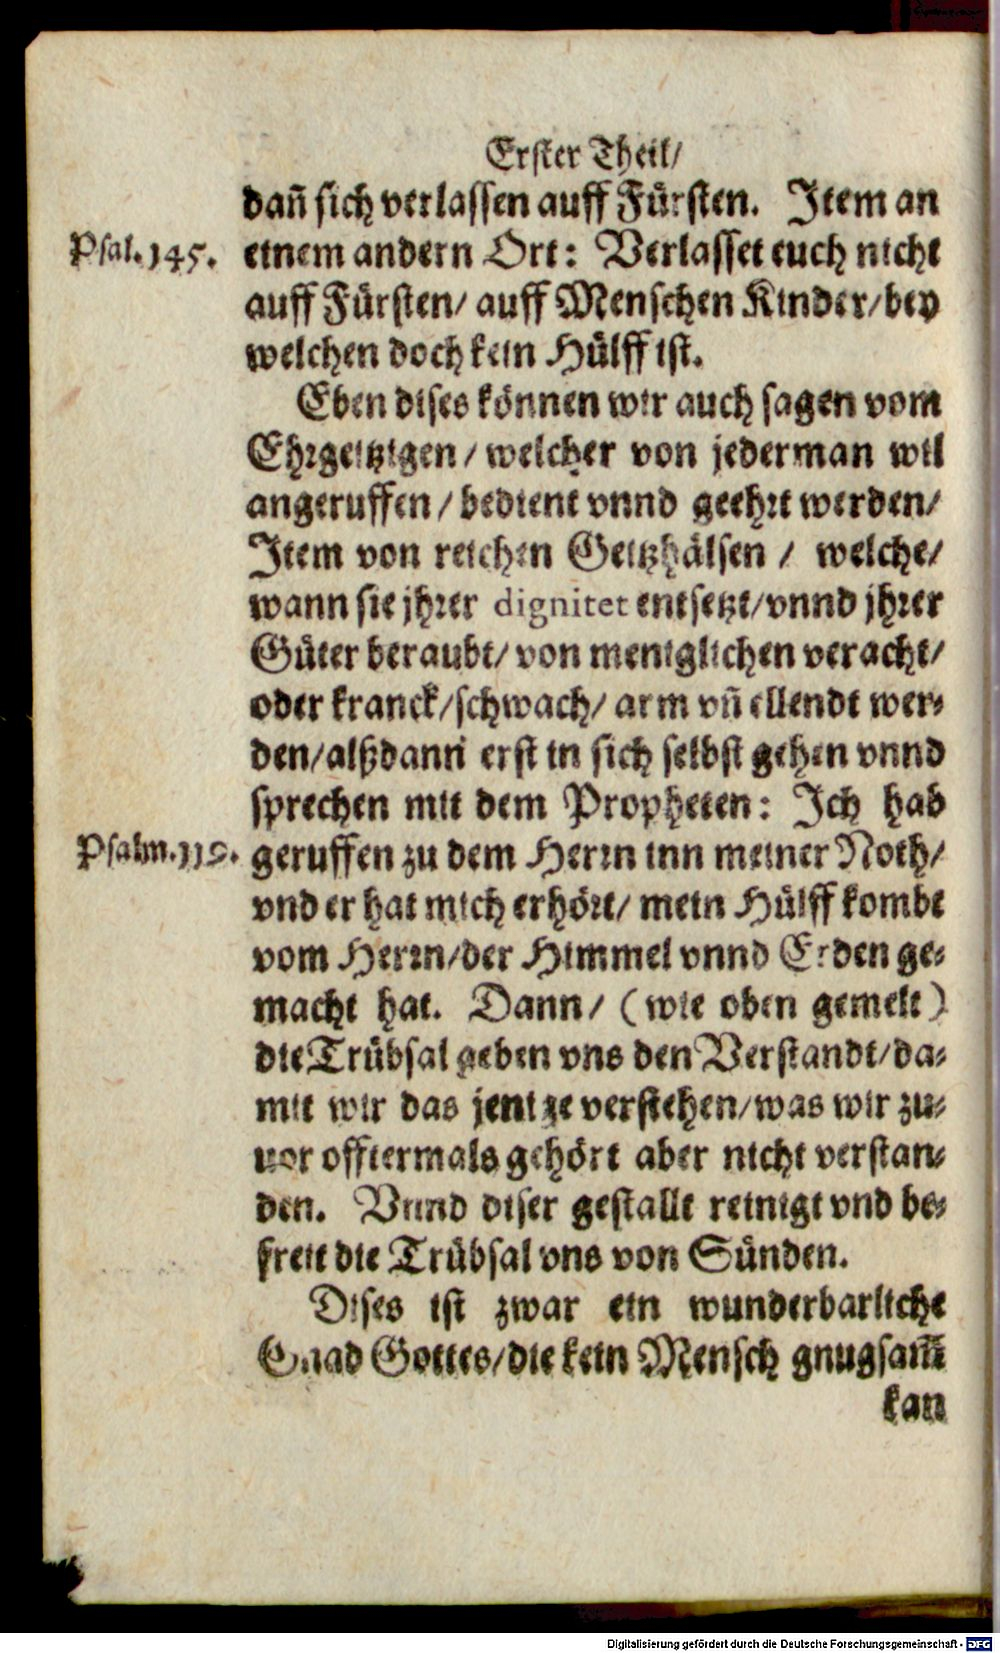 Erster Theil/
dañ sich verlassen auff Fürsten. Item an
Psal. 145. einem andern Ort: Verlasset euch nicht
auff Fürsten/ auff Menschen Kinder/ bey
welchen doch kein Hülff ist.
Eben dises können wir auch sagen vom
Ehrgeitzigen/ welcher von jederman wil
angeruffen/ bedient vnnd geehrt werden/
Item von reichen Geitzhälsen/ welche/
wann sie jhrer dignitet entsetzt/ vnnd jhrer
Güter beraubt/ von meniglichen veracht/
oder kranck/ schwach/ arm vñ ellendt wer-
den/ alßdann erst in sich selbst gehen vnnd
sprechen mit dem Propheten: Ich hab
Psalm. geruffen zu dem Herrn inn meiner Noth/
vnd er hat mich erhört/ mein Hülff kombt
vom Herrn/ der Himmel vnnd Erden ge-
macht hat. Dann/ (wie oben gemelt)
die Trübsal geben vns den Verstandt/ da-
mit wir das jenige verstehen/ was wir zu-
uor offtermals gehört aber nicht verstan-
den. Vnnd diser gestallt reinigt vnd be-
freit die Trübsal vns von Sünden.
Dises ist zwar ein wunderbarliche
Gnad Gottes/ die kein Mensch gnugsam̃
kan
Digitalisierung gefördert durch die Deutsche Forschungsgemeinschaft - DFG